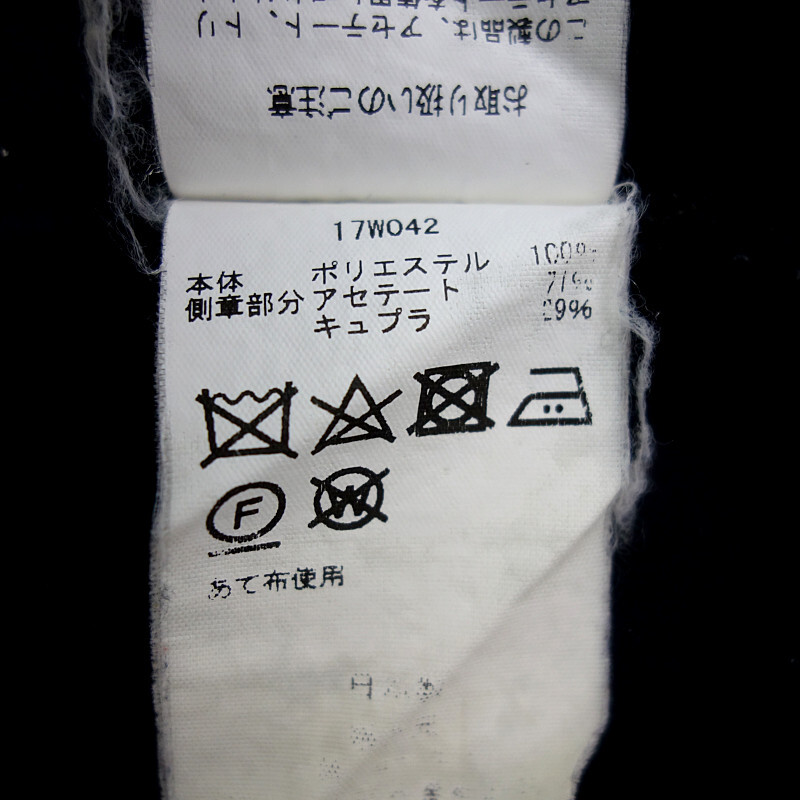 この製品は、アセテート、トリ
お取り扱いのご注意
17W042
本体 ポリエステル 100%
側章部分 アセテート
キュプラ 29%
F
W
あて布使用